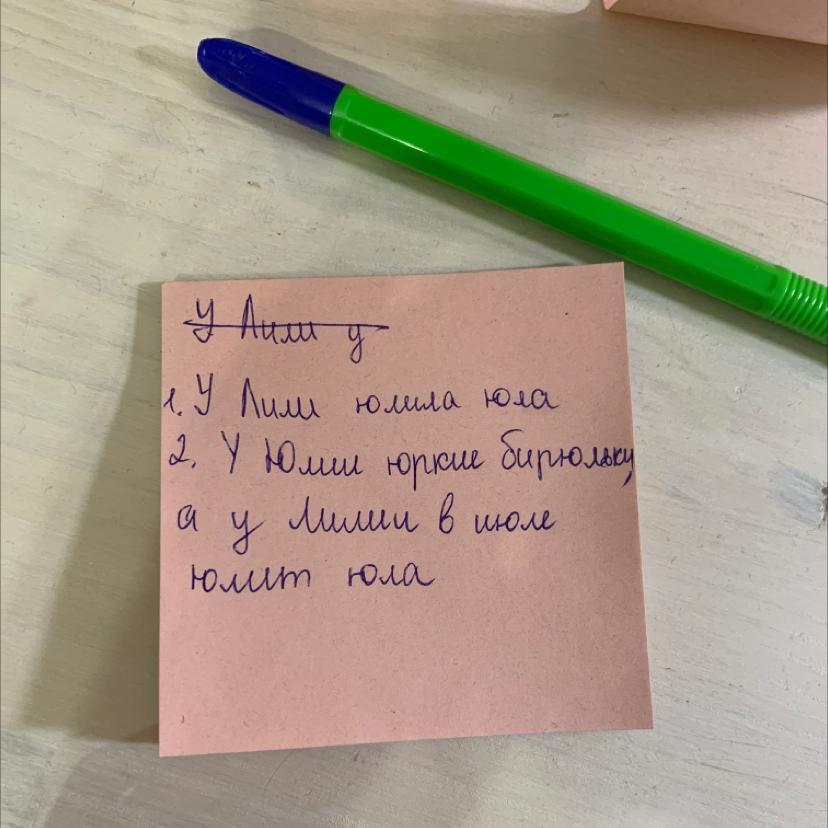 У Лили у
1. У Лили юлила юла
2. У Юлии юркие бирюльки,
а у Лилии в июле
юлит юла